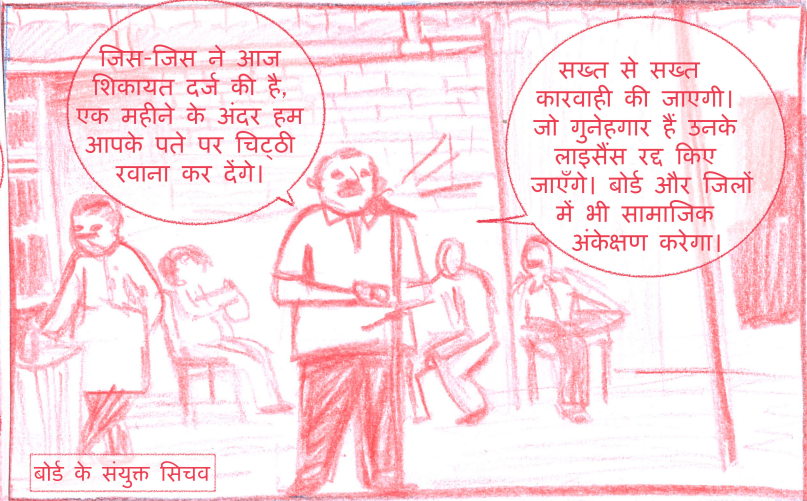 जिस-जिस ने आज
शिकायत दर्ज की है,
एक महीने के अंदर हम
आपके पते पर चिट्ठी
रवाना कर देंगे।
सख्त से सख्त
कारवाही की जाएगी।
जो गुनेहगार हैं उनके
लाइसैंस रद्द किए
जाएँगे। बोर्ड और जिलों
में भी सामाजिक
अंकेक्षण करेगा।
बोर्ड के संयुक्त सिचव